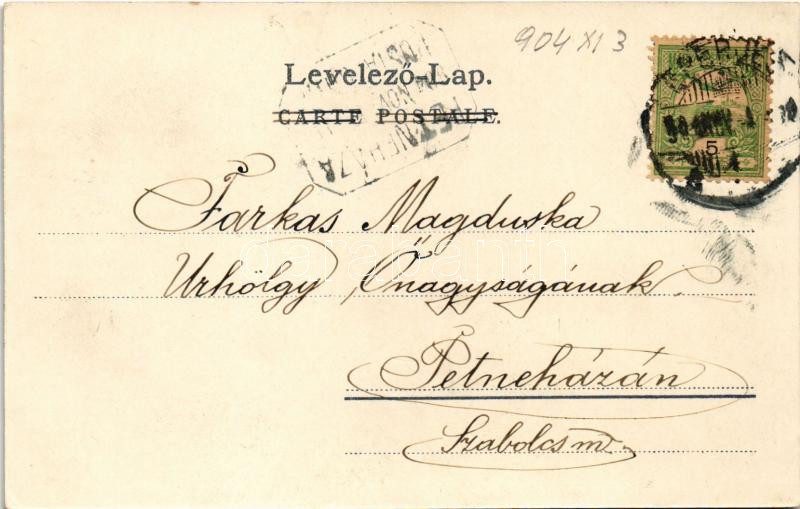 904 XI 3
Levelező-Lap.
CARTE POSTALE.
PETNEHÁZA
POSTA
NOV
5
Farkas Magduska
Urhölgy Őnagyságának
Petneházán
Szabolcs m.